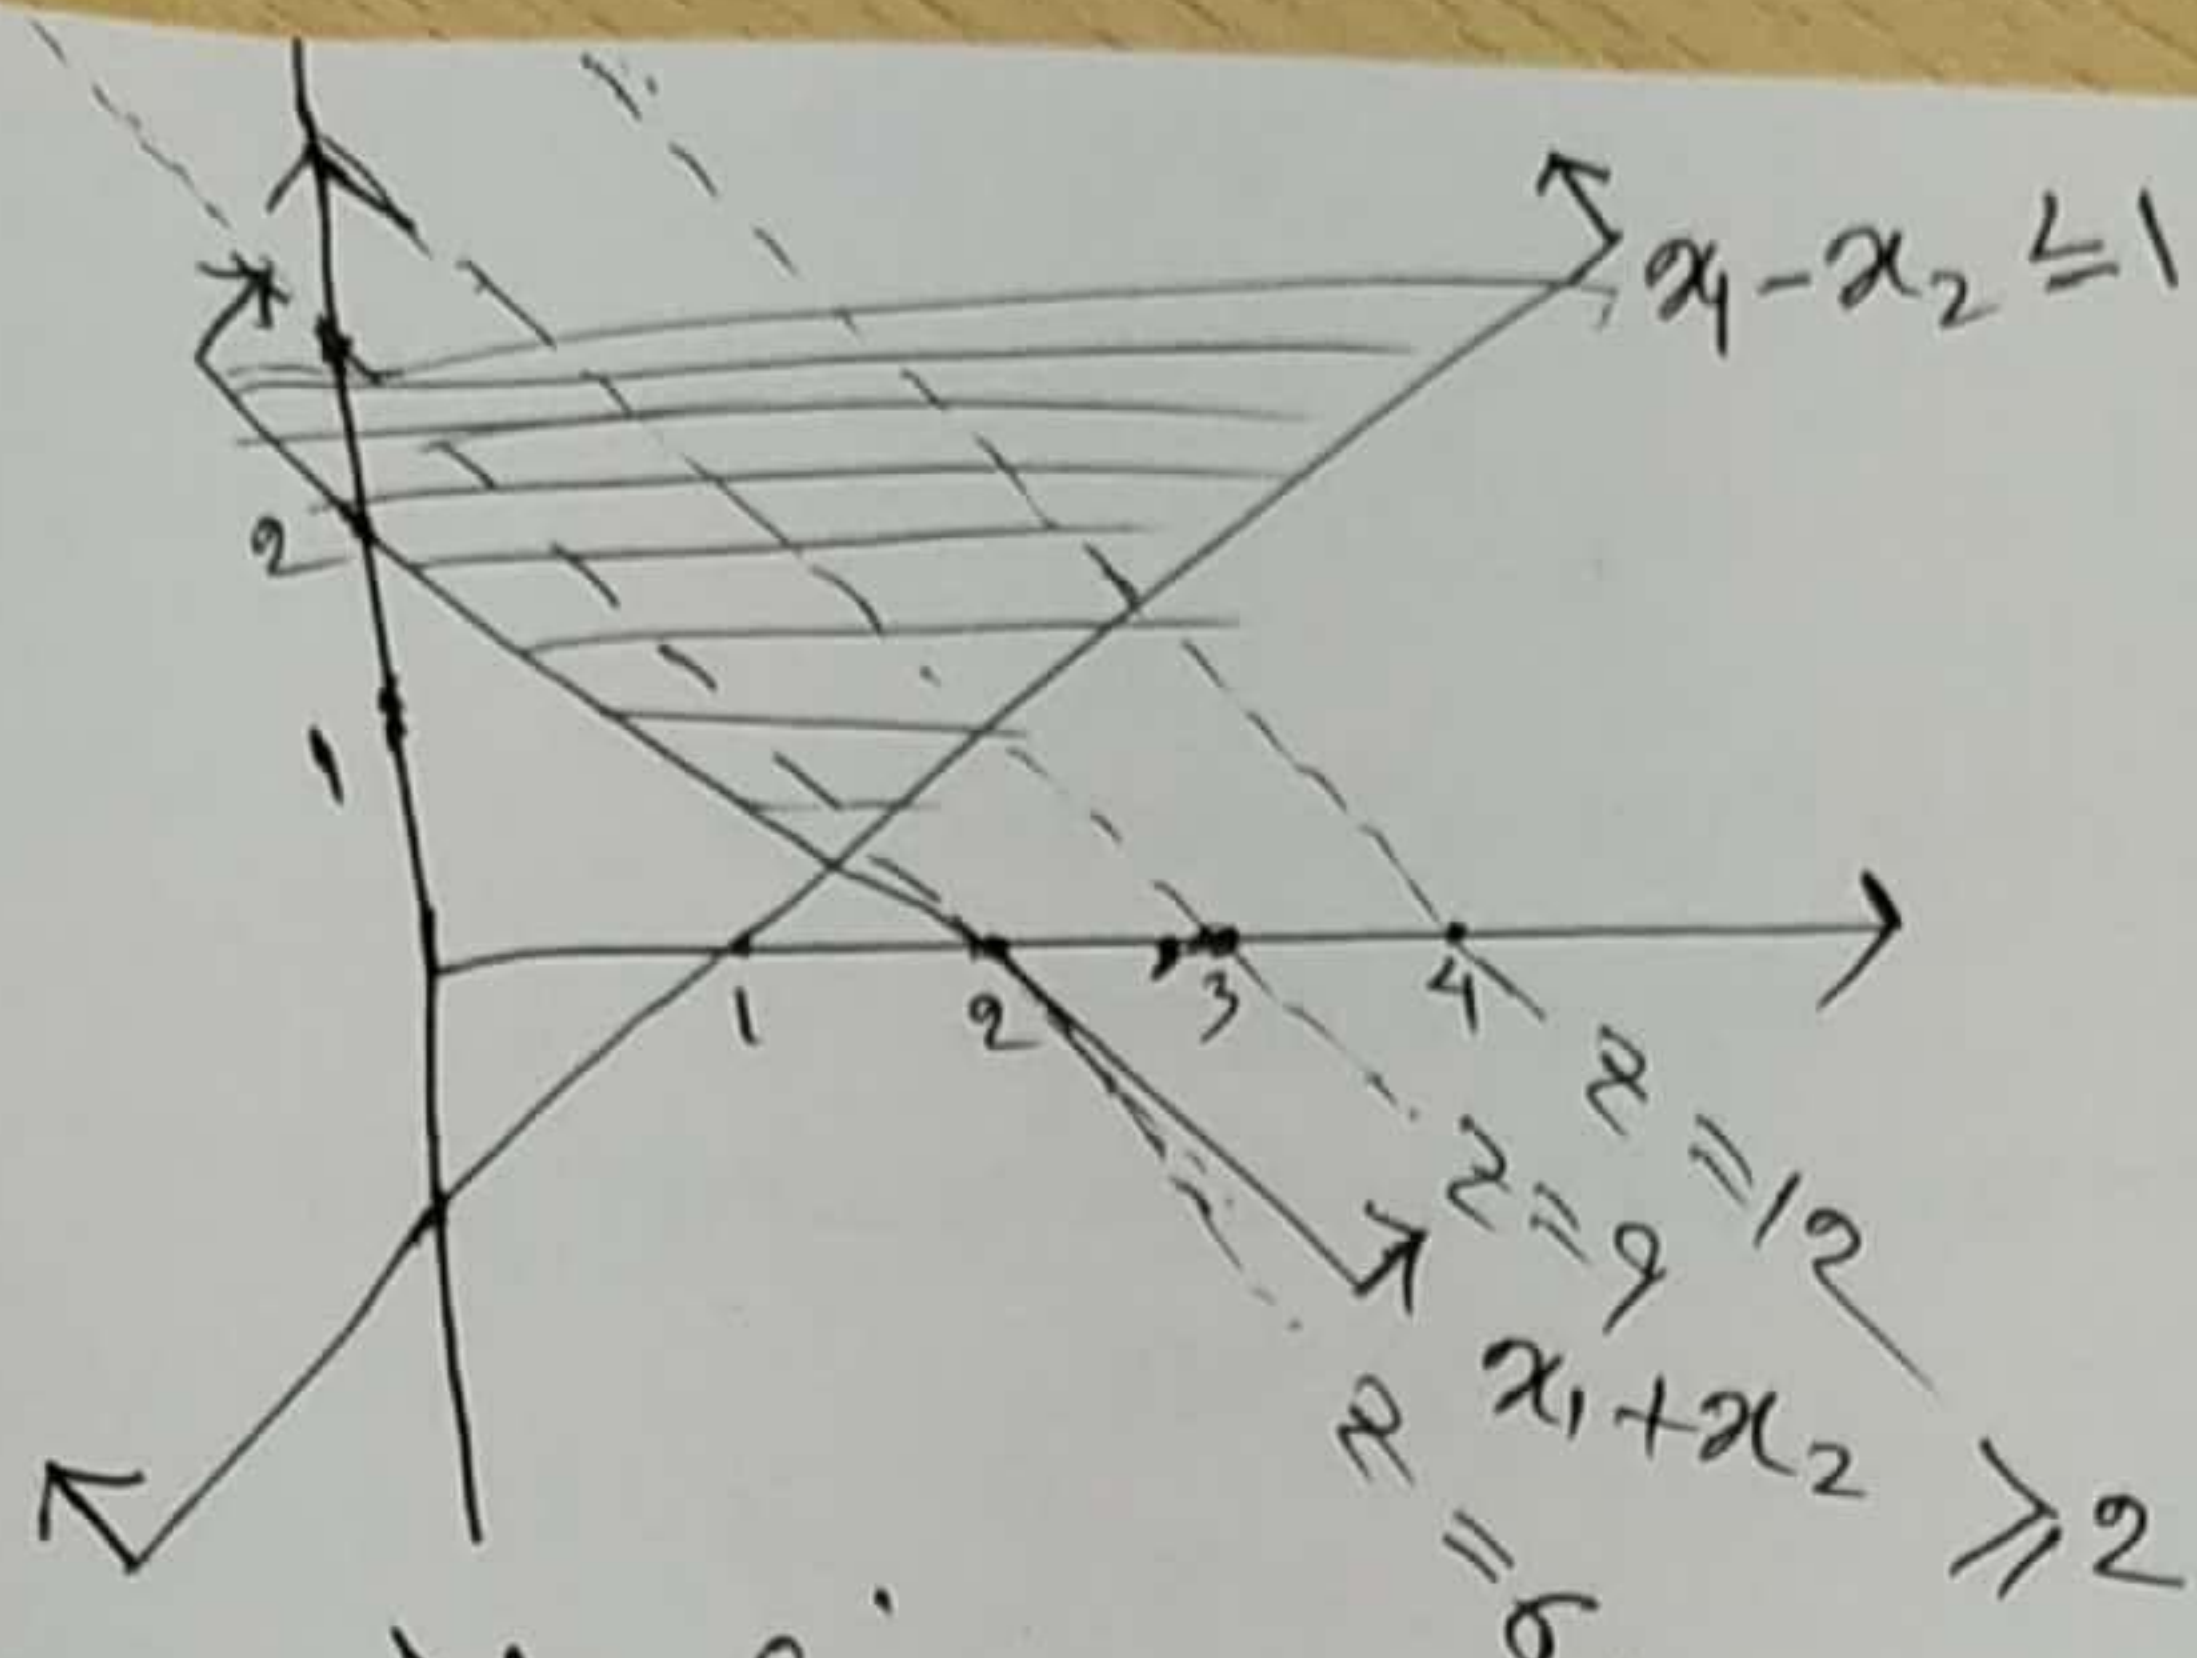 x₁ - x₂ ≤ 1
2
1
1 2 3 4
z = 12
z = 9
x₁ + x₂ ≥ 2
z = 6